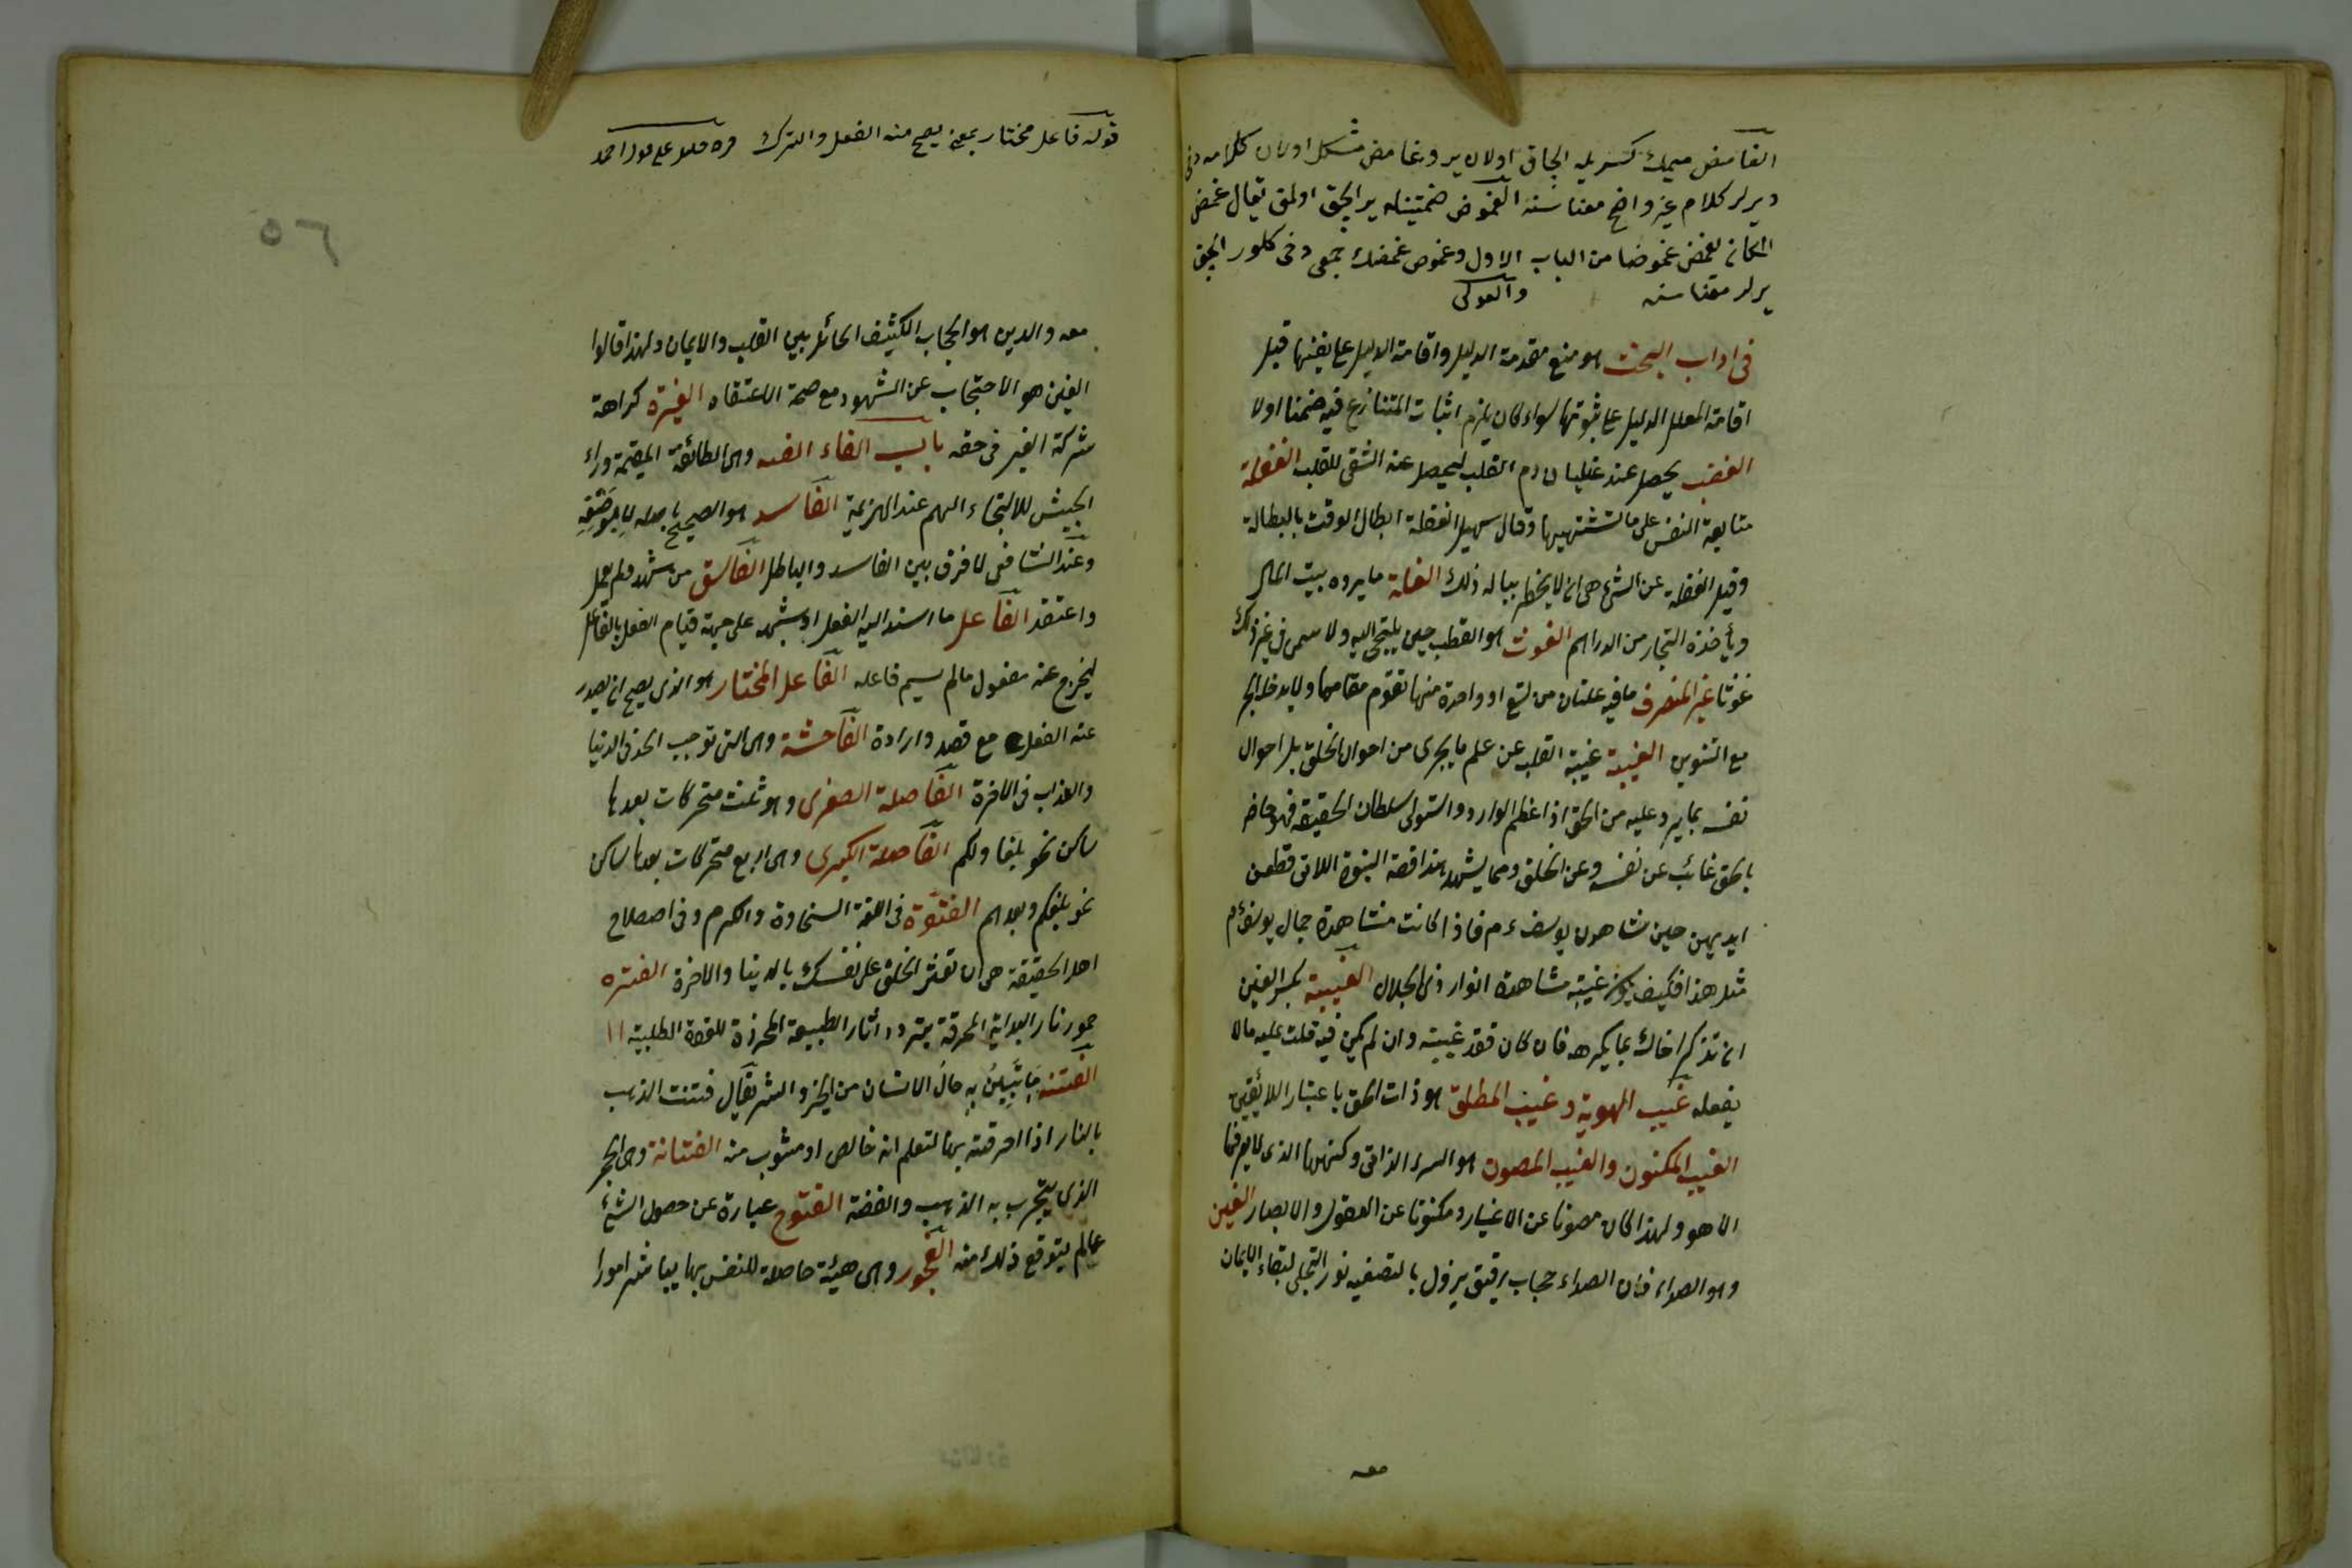 الغامض ميمك كسريله الچاق اولان ير وغامض مشكل اولان كلامه دخى
ديرلر كلام غير واضح معناسنه الغموض ضمتينله ير الچق اولمق يقال غمض
المكان يغمض غموضا من الباب الاول وغموض غمضك جمعى دخى كلور الچق
يرلر معناسنه
فى اداب البحث هو منع مقدمة الدليل واقامة الدليل على نفيها قبل
اقامة المعلل الدليل على ثبوتها سواء كان يلزم اثبات المتنازع فيه ضمنا اولا
الغضب يحصل عند غليان دم القلب ليحصل عنه التشفى للقلب الغفلة
متابعة النفس على ما تشتهيها وقال سهيل الغفلة ابطال الوقت بالبطالة
وقيل الغفلة عن الشئ هى ان لا يخطر بباله ذلك الغلة ما يرده بيت المال
ويأخذه التجار من الدراهم الغوث هو القطب حين يلتجئ اليه ولا يسمى فى غير ذلك
غوثا غير المنصرف ما فيه علتان من تسع او واحدة منها تقوم مقامهما ولا يدخله الجر
مع التنوين الغيبة غيبة القلب عن علم ما يجرى من احوال الخلق بل احوال
نفسه بما يرد عليه من الحق اذا عظم الوارد واستولى سلطان الحقيقة فهو حاضر
بالحق غائب عن نفسه وعن الخلق ومما يشهد هذا قصة النسوة اللاتى قطعن
ايديهن حين شاهدن يوسف ءم فاذا كانت مشاهدة جمال يوسف ءم
مثل هذا فكيف يكون غيبة مشاهدة انوار ذى الجلال الغيبة بكسر الغين
ان تذكر اخاك بما يكرهه فان كان فقد غيبته وان لم يكن فيه قلت عليه مالا
يفعله غيب الهوية وغيب المطلق هو ذات الحق باعتبار اللا تعين
الغيب المكنون والغيب المصون هو السر الذاتى وكنهها الذى لا يعرفها
الا هو ولهذا كان مصونا عن الاغيار ومكنونا عن العقول والابصار الغين
وهو الصداء فان الصداء حجاب رقيق يزول بالتصفيه نور التجلى لبقاء الايمان
معه
قوله فاعل مختار بمعنى يصح منه الفعل والترك
معه والدين هو الحجاب الكثيف الحائل بين القلب والايمان ولهذا قالوا
الغين هو الاحتجاب عن الشهود مع صحة الاعتقاد الغيرة كراهة
شركة الغير فى حقه باب الفاء الفئه وهى الطائفة المقيمة وراء
الجيش للالتجاء اليهم عند الهزيمة الفاسد هو الصحيح باصله لا بوصفه
وعند الشافى لا فرق بين الفاسد والباطل الفاسق من شهد ولم يعمل
واعتقد الفاعل ما اسند اليه الفعل او شبهه على جهة قيام الفعل بالفاعل
ليخرج عنه مفعول مالم يسم فاعله الفاعل المختار هو الذى يصح ان يصدر
عنه الفعل مع قصد وارادة الفاحشة وهى التى توجب الحد فى الدنيا
والعذاب فى الاخرة الفاصلة الصغرى وهو ثلث متحركات بعدها
ساكن نحو بلغا ولكم الفاصلة الكبرى وهى اربع متحركات بعدها ساكن
نحو بلغكم وبعدهم الفتوة فى اللغة السخاوة والكرم وفى اصطلاح
اهل الحقيقة هى ان تؤثر الخلق على نفسك بالدنيا والاخرة الفتره
خمود نار البداية المحرقة بتردد اثار الطبيعة المخدرة للقوة الطلبية
الفتنه ما يتبين به حال الانسان من الخير والشر يقال فتنت الذهب
بالنار اذا احرقته بها لتعلم انه خالص او مشوب منه الفتانة وهى الحجر
الذى يتجرب به الذهب والفضة الفتوح عبارة عن حصول الشئ
عما لم يتوقع ذلك منه الفجور وهى هيئة حاصلة للنفس بها يباشر امورا